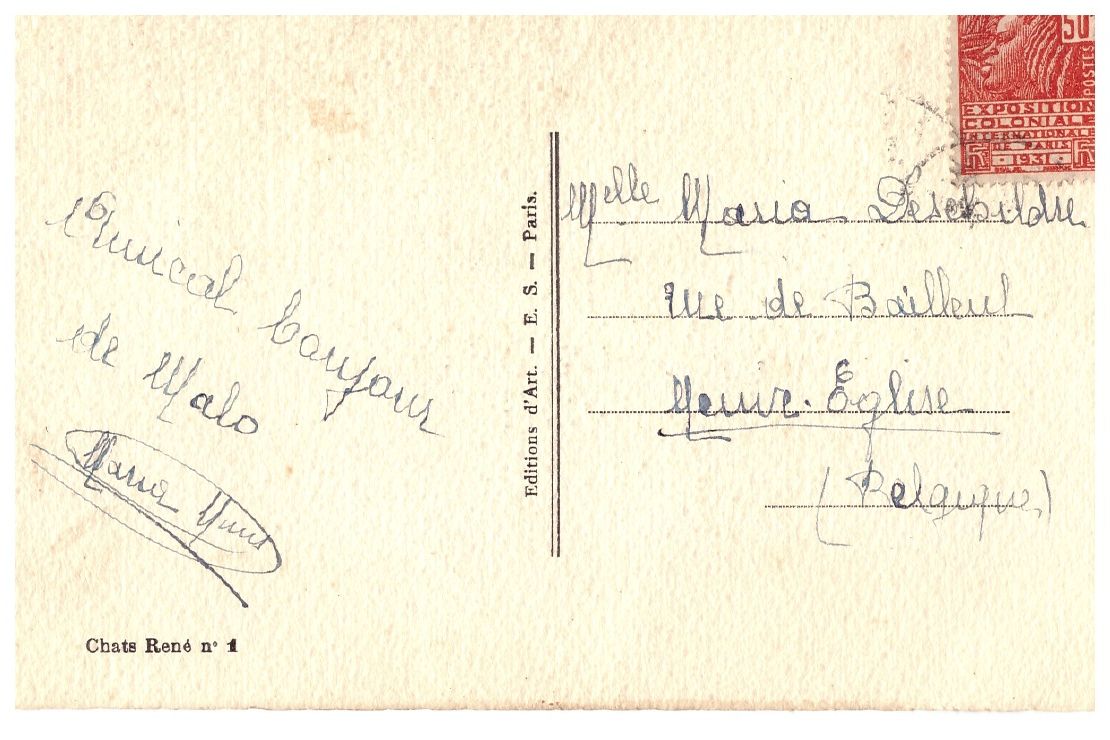 Amical bonjour
de Malo
Maria
Chats René n° 1
Editions d'Art. — E. S. — Paris.
50
POSTES
EXPOSITION
COLONIALE
INTERNATIONALE
DE PARIS
1931
Melle Maria Deschildre
rue de Bailleul
Neuve-Église
(Belgique)